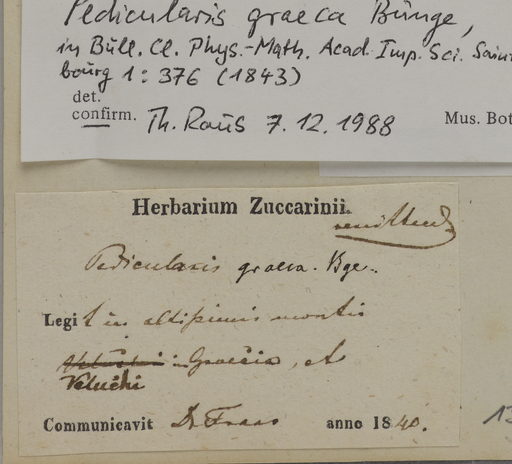 Pedicularis graeca Bunge,
in Bull. Cl. Phys.-Math. Acad. Imp. Sci. Saint
bourg 1: 376 (1843)
det.
confirm. Th. Raus 7.12.1988 Mus. Bot
Herbarium Zuccarinii.
Pedicularis graeca. Bge.
Legit in altissimis montis
Veluchi in Graecia, et
Veluchi
Communicavit Dr Fraas anno 1840.